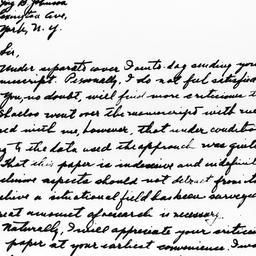 B. Johnson
Lexington Ave,
York, N. Y.
Sir,
Under separate cover I am to-day sending you
manuscript. Personally, I do not feel satisfied
You, no doubt, will find more criticisms t
Shallow went over the manuscript with me
ed with me, however, that under condition
g to the data used the approach was quite
that this paper is indecisive and indefinite
clusive aspects should not detract from it
believe a situational field has been surveyed
reat amount of research is necessary.
Naturally, I will appreciate your criticis
paper at your earliest convenience. I wo